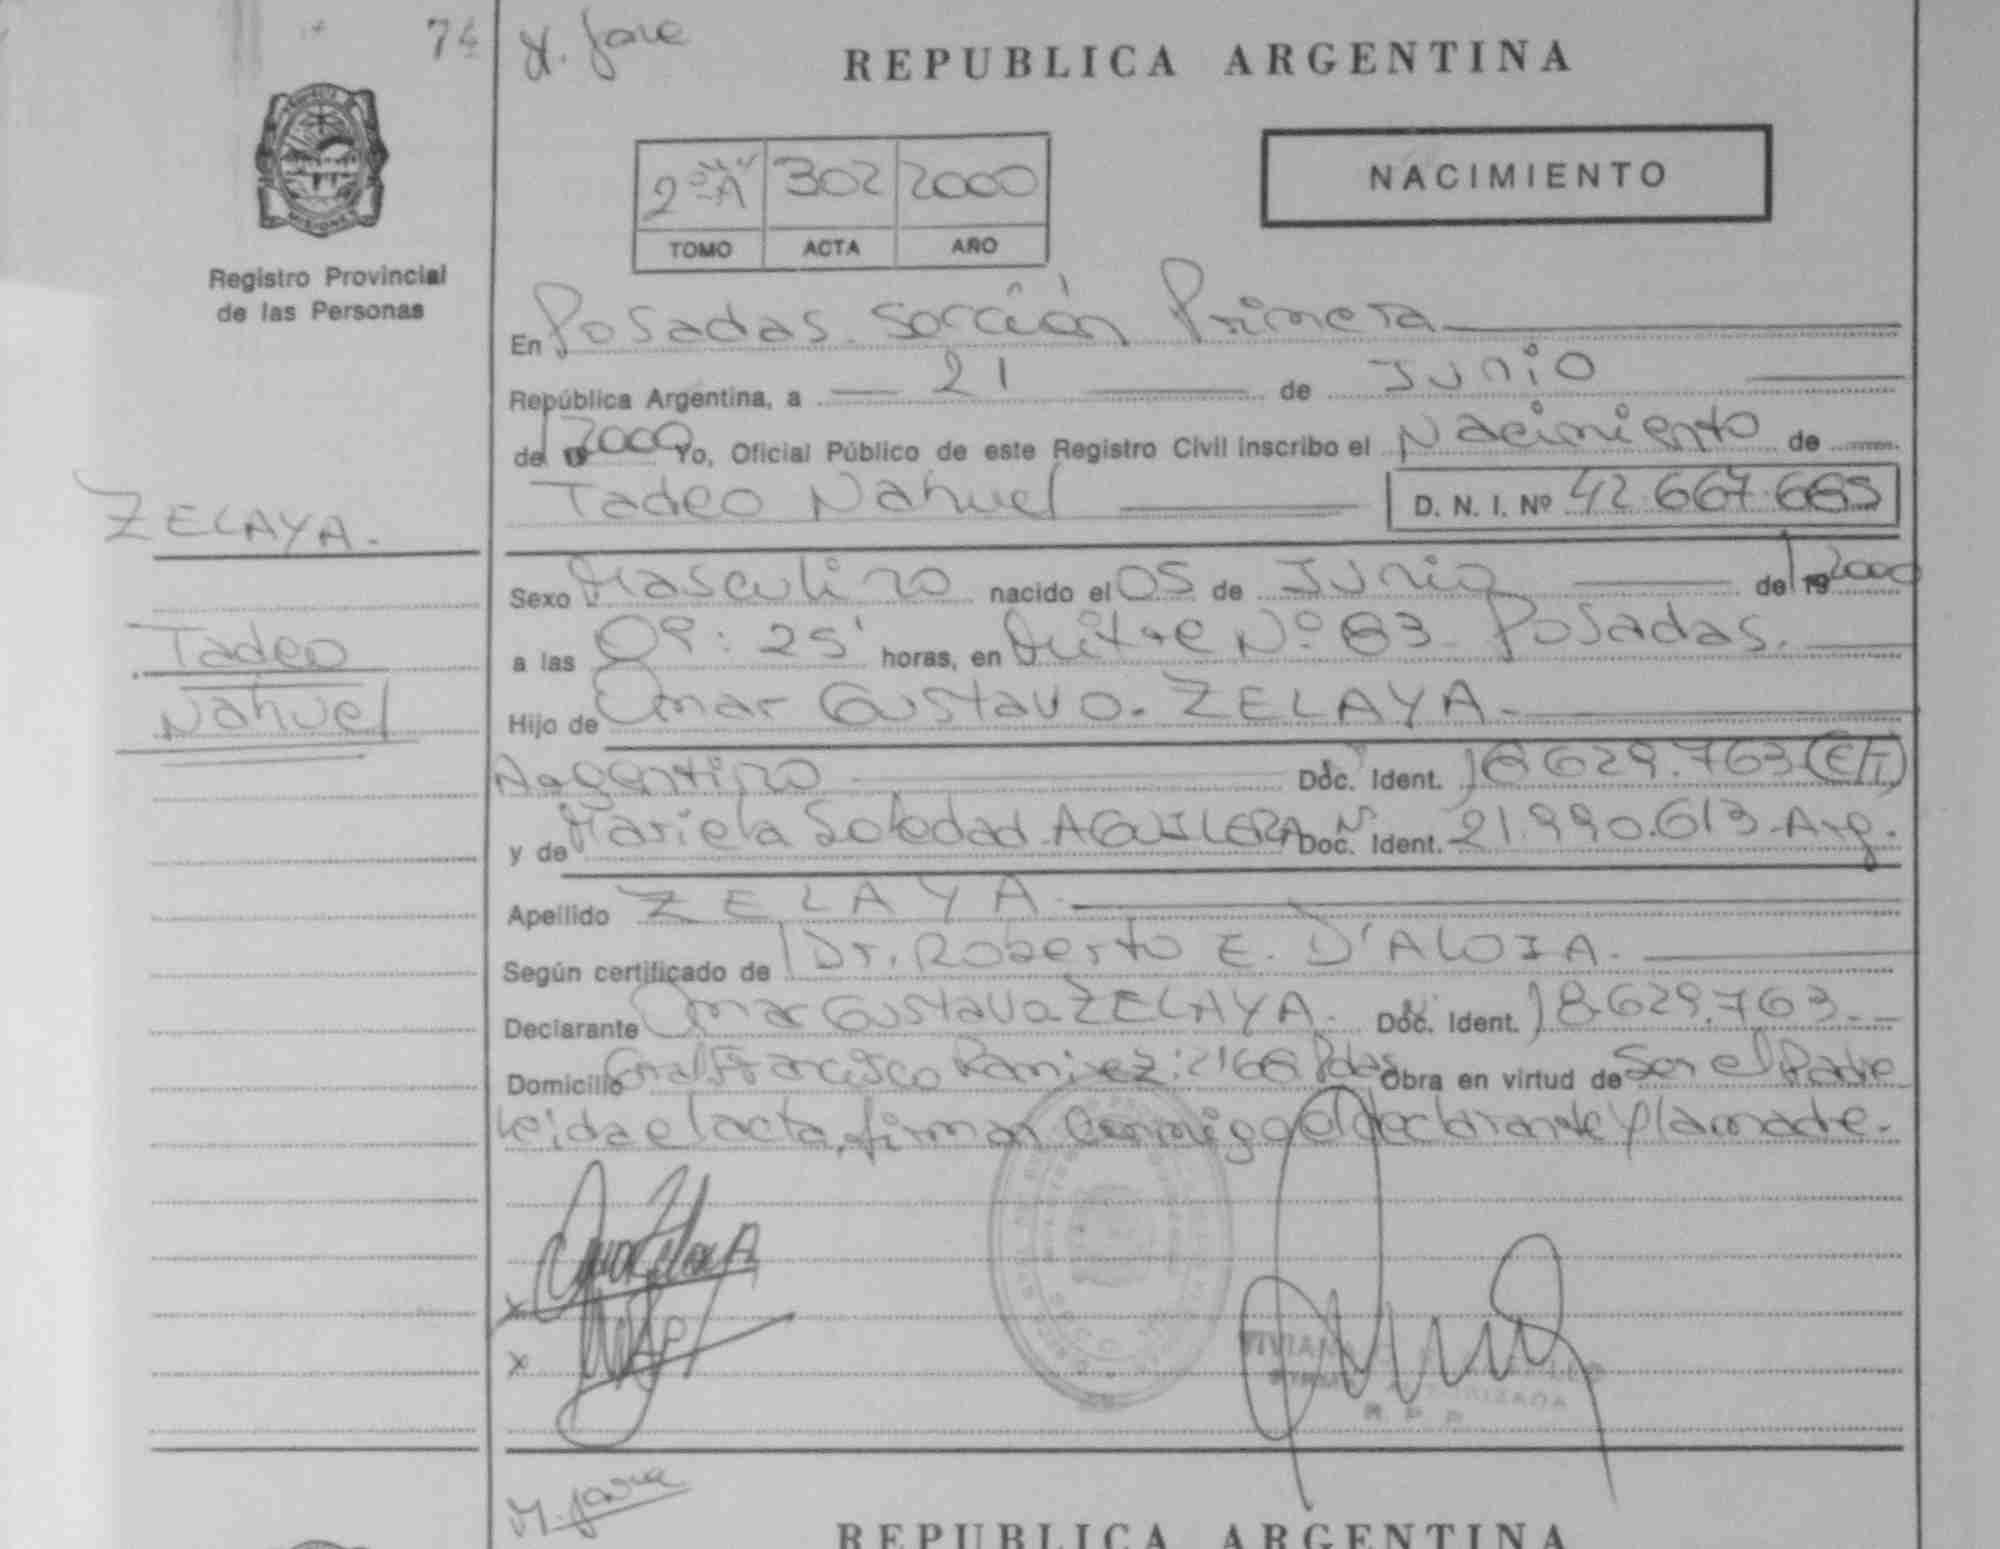 74
REPUBLICA ARGENTINA
302 2000
TOMO ACTA AÑO
NACIMIENTO
Registro Provincial
de las Personas
En Posadas. Sección Primera
República Argentina, a 21 de Junio
de 2000 Yo, Oficial Público de este Registro Civil inscribo el Nacimiento de
Tadeo Nahuel D. N. I. Nº 42.667.665
ZELAYA.
Tadeo
Nahuel
Sexo Masculino nacido el 05 de Junio de 19 2000
a las 09:25' horas, en Mitre Nº 83 Posadas.
Hijo de Omar Gustavo. ZELAYA.
Argentino Doc. Ident. 18.629.763
y de Mariela Soledad AGUILERA Doc. Ident. 21.990.613 Arg.
Apellido ZELAYA
Según certificado de Dr. Roberto E. D'ALOIA.
Declarante Omar Gustavo ZELAYA. Doc. Ident. 18.629.763
Domicilio Gral Francisco Ramirez: 2166 Pdas Obra en virtud de Ser el Padre
Leida el acta, firman conmigo el declarante y la madre.
REPUBLICA ARGENTINA